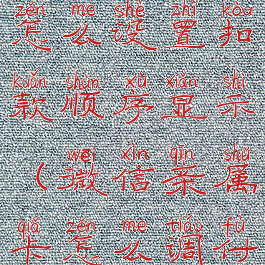 zěn me shè zhì kòu
怎么设置扣
kuǎn shùn xù xiǎn shì
款顺序显示
wēi xìn qīn shǔ
(微信亲属
qiǎ zěn me tiáo fù
卡怎么调付